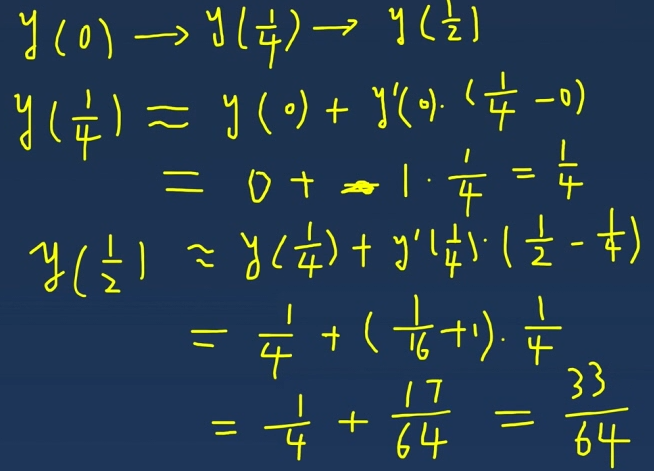 y(0) → y(1/4) → y(1/2)
y(1/4) ≈ y(0) + y'(0)·(1/4 − 0)
= 0 + 1 · 1/4 = 1/4
y(1/2) ≈ y(1/4) + y'(1/4)·(1/2 − 1/4)
= 1/4 + (1/16 + 1)· 1/4
= 1/4 + 17/64 = 33/64